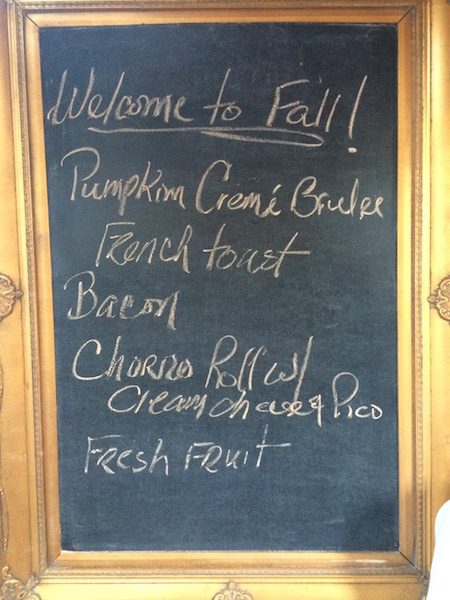 Welcome to Fall!
Pumpkin Cremé Brulee
French toast
Bacon
Chorizo Roll w/
Cream cheese & Pico
Fresh Fruit